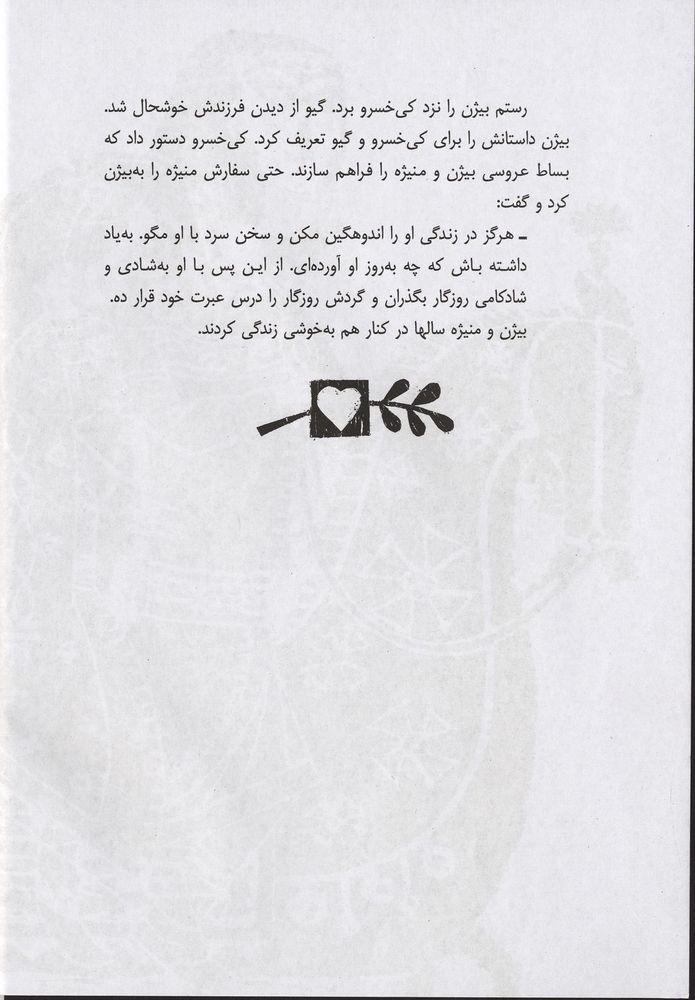 رستم بیژن را نزد کی‌خسرو برد. گیو از دیدن فرزندش خوشحال شد.
بیژن داستانش را برای کی‌خسرو و گیو تعریف کرد. کی‌خسرو دستور داد که
بساط عروسی بیژن و منیژه را فراهم سازند. حتی سفارش منیژه را به‌بیژن
کرد و گفت:
ـ هرگز در زندگی او را اندوهگین مکن و سخن سرد با او مگو. به‌یاد
داشته باش که چه به‌روز او آورده‌ای. از این پس با او به‌شادی و
شادکامی روزگار بگذران و گردش روزگار را درس عبرت خود قرار ده.
بیژن و منیژه سالها در کنار هم به‌خوشی زندگی کردند.